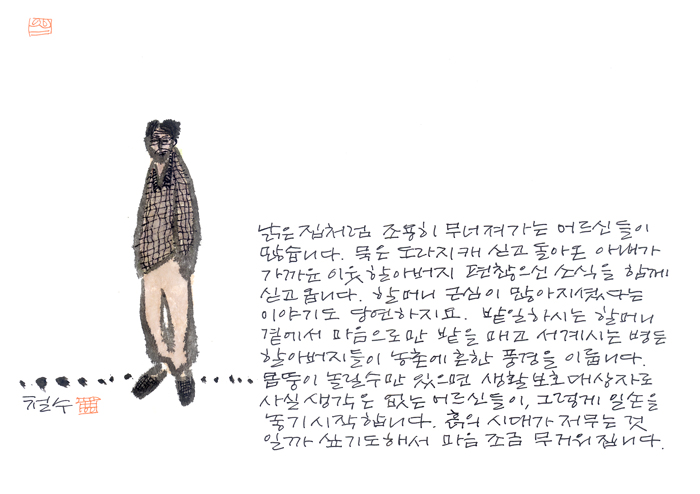 낡은 집처럼 조용히 무너져가는 어르신들이
많습니다. 묵은 도라지 캐 싣고 돌아온 아내가
가까운 이웃 할아버지 편찮으신 소식을 함께
싣고 옵니다. 할머니 근심이 많아지셨다는
이야기도 당연하지요. 밭일하시는 할머니
곁에서 마음으로만 밭을 매고 서계시는 병든
할아버지들이 농촌에 흔한 풍경을 이룹니다.
몸뚱이 놀릴수만 있으면 생활보호대상자로
사실 생각은 없는 어르신들이, 그렇게 일손을
놓기 시작합니다. 흙의 시대가 저무는 것
일까 싶기도해서 마음 조금 무거워집니다.
철수